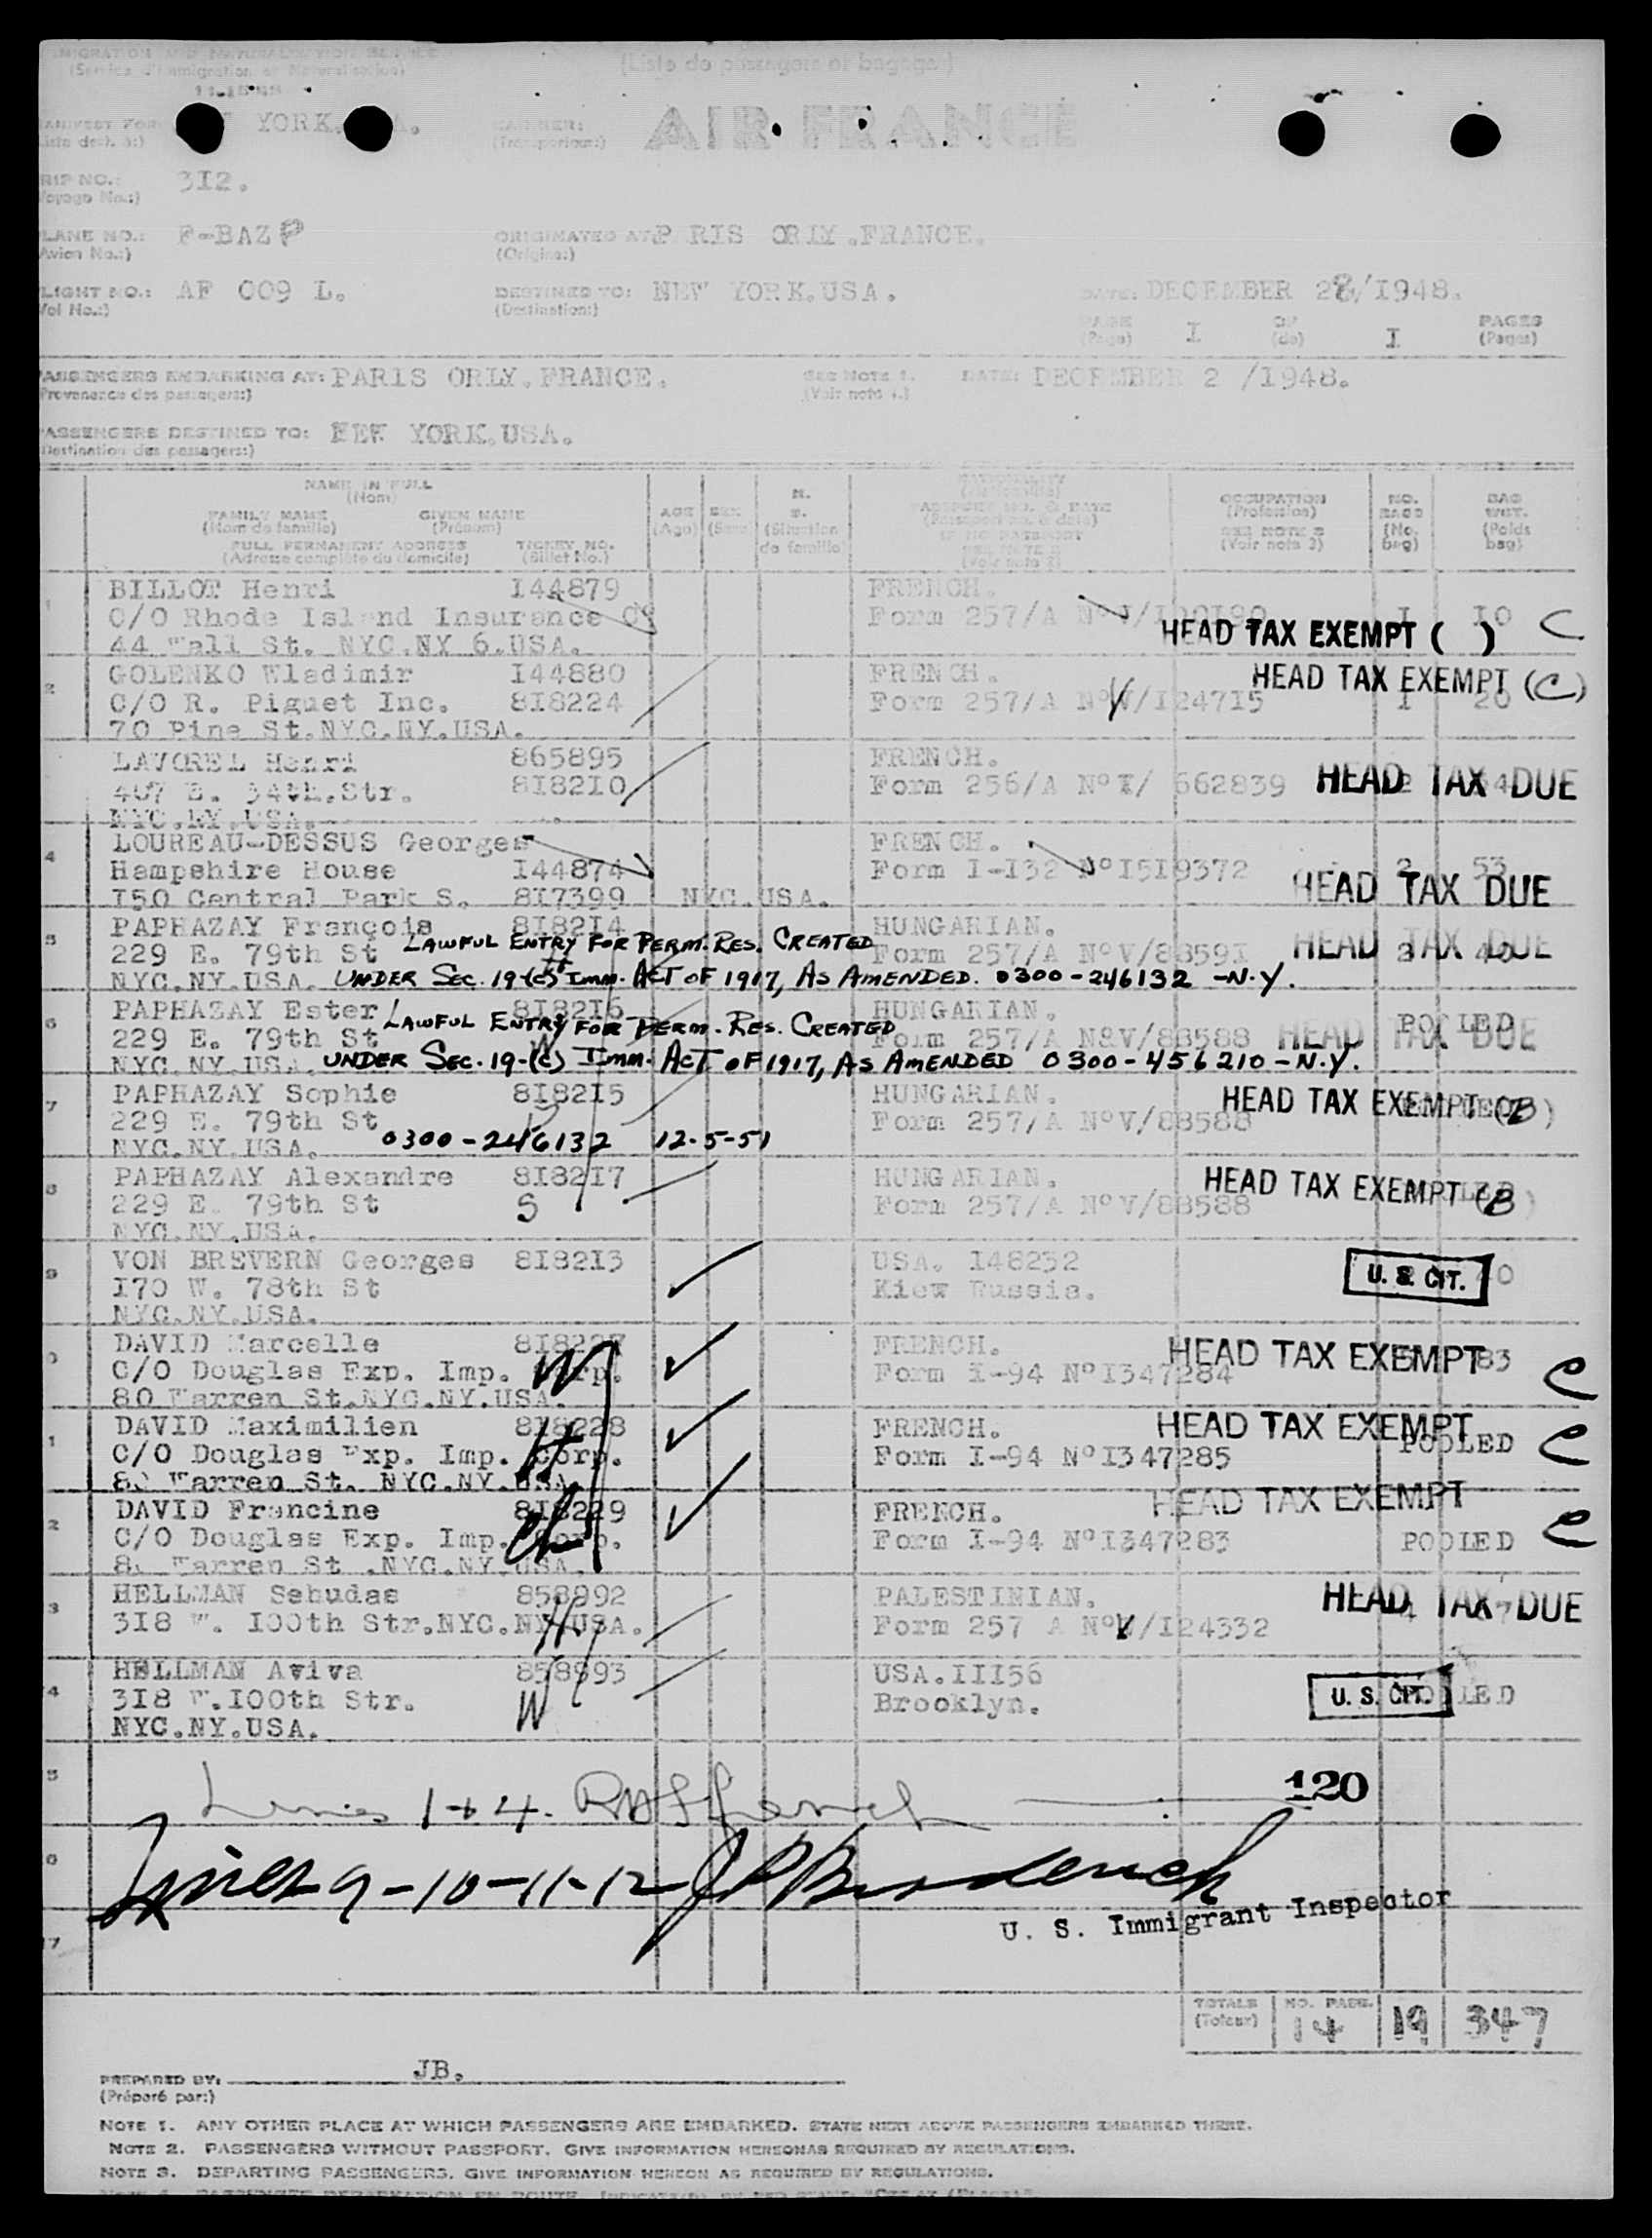 (Liste de passagers et bagages)
YORK.
AIR FRANCE
312.
F-BAZP
ORIGINATED AT: P RIS ORLY.FRANCE.
(Origine:)
AF 009 L.
DESTINED TO: NEW YORK.USA.
DATE: DECEMBER 28/1948.
(Destination:)
PAGE I OF I PAGES
(Page) (de) (Pages)
PASSENGERS EMBARKING AT: PARIS ORLY.FRANCE. SEE NOTE 1. DATE: DECEMBER 2 /1948.
(Provenance des passagers:) (Voir note 1.)
PASSENGERS DESTINED TO: NEW YORK.USA.
(Destination des passagers:)
NAME IN FULL
(Nom)
FAMILY NAME GIVEN NAME AGE SEX M. S. OCCUPATION NO. BAGS BAG WGT.
(Nom de famille) (Prénom) (Age) (Sexe) (Situation de famille) (Profession) (No. bag) (Poids bag)
FULL PERMANENT ADDRESS TICKET NO. SEE NOTE 3
(Adresse complète du domicile) (Billet No.) (Voir note 3)
BILLOT Henri I44879 FRENCH.
C/O Rhode Island Insurance Form 257/A I IO C
HEAD TAX EXEMPT ( )
44 Wall St. NYC.NY 6.USA.
GOLENKO Wladimir I44880 FRENCH. HEAD TAX EXEMPT (C)
C/O R. Piguet Inc. 8I8224 Form 257/A NºV/I24715 I 20
70 Pine St.NYC.NY.USA.
LAVOREL Henri 865895 FRENCH.
407 E. 54th.Str. 8I82IO Form 256/A NºI/ 662839 HEAD TAX DUE
NYC.NY.USA.
4 LOUREAU-DESSUS Georges FRENCH.
Hampshire House I44874 Form I-I32 NºI5I9372 2 53
HEAD TAX DUE
I50 Central Park S. 8I7399 NYC.USA.
5 PAPHAZAY François 8I82I4 HUNGARIAN.
LAWFUL ENTRY FOR PERM. RES. CREATED
229 E. 79th St Form 257/A NºV/8859I HEAD TAX DUE
NYC.NY.USA. UNDER SEC. 19-(c) IMM. ACT OF 1917, AS AMENDED. 0300-246132 -N.Y.
6 PAPHAZAY Ester 8I82I6 HUNGARIAN. POOLED
LAWFUL ENTRY FOR PERM. RES. CREATED
229 E. 79th St W Form 257/A NºV/88588 HEAD TAX DUE
NYC.NY.USA. UNDER SEC. 19-(c) IMM. ACT OF 1917, AS AMENDED 0300-456210-N.Y.
7 PAPHAZAY Sophie 8I82I5 HUNGARIAN. HEAD TAX EXEMPT (B)
229 E. 79th St Form 257/A NºV/88588
NYC.NY.USA. 0300-246132 12-5-51
8 PAPHAZAY Alexandre 8I82I7 HUNGARIAN. HEAD TAX EXEMPT (B)
229 E. 79th St S Form 257/A NºV/88588
NYC.NY.USA.
9 VON BREVERN Georges 8I82I3 USA. I48232
I70 W. 78th St Kiew Russia. U. S. CIT.
NYC.NY.USA.
DAVID Marcelle 8I8227 FRENCH. HEAD TAX EXEMPT
C/O Douglas Exp. Imp. Corp. W Form I-94 NºI347284 C
80 Warren St.NYC.NY.USA.
DAVID Maximilien 8I8228 FRENCH. HEAD TAX EXEMPT
C/O Douglas Exp. Imp. Corp. H Form I-94 NºI347285 POOLED C
80 Warren St. NYC.NY.USA.
DAVID Francine 8I8229 FRENCH. HEAD TAX EXEMPT
C/O Douglas Exp. Imp. Corp. Ch Form I-94 NºI347283 POOLED C
80 Warren St .NYC.NY.USA.
3 HELLMAN Sehudas 858992 PALESTINIAN. HEAD TAX DUE
3I8 W. I00th Str.NYC.NY.USA. H Form 257 A NºV/I24332
HELLMAN Aviva 858993 USA.III56
4 3I8 W.I00th Str. W Brooklyn. U. S. CIT. POOLED
NYC.NY.USA.
Lines 1+4. 120
Lines 9-10-11-12 J P Broderick
U. S. Immigrant Inspector
TOTALS NO. PASS. 19 347
(Totaux) 14
PREPARED BY: JB.
(Préparé par:)
NOTE 1. ANY OTHER PLACE AT WHICH PASSENGERS ARE EMBARKED. STATE NEXT ABOVE PASSENGERS EMBARKED THERE.
NOTE 2. PASSENGERS WITHOUT PASSPORT. GIVE INFORMATION HEREON AS REQUIRED BY REGULATIONS.
NOTE 3. DEPARTING PASSENGERS. GIVE INFORMATION HEREON AS REQUIRED BY REGULATIONS.